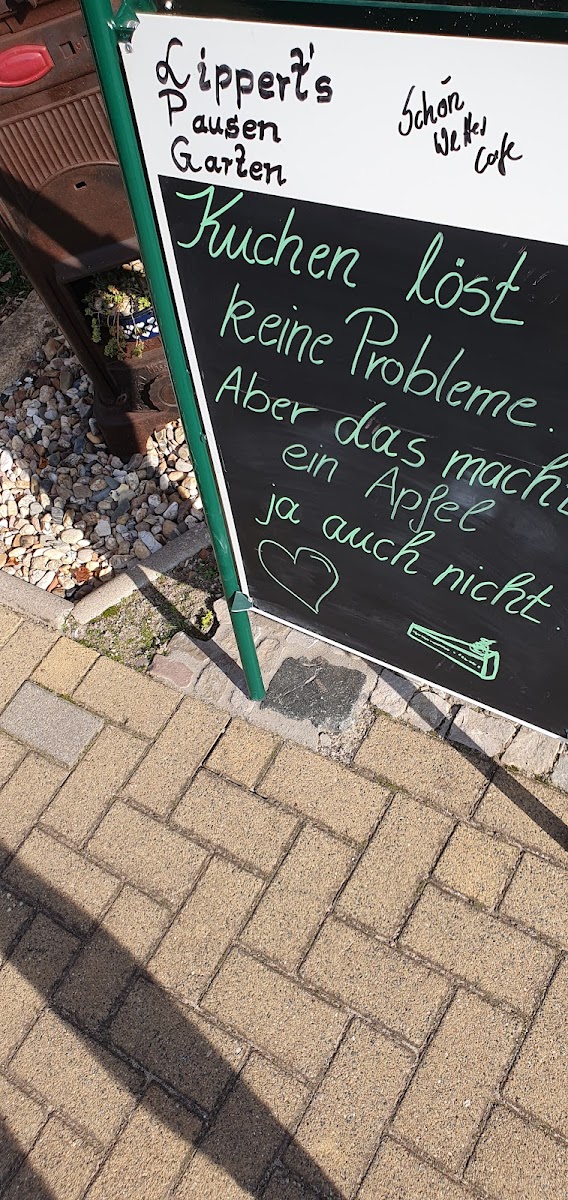 Lippert's
Pausen
Garten
Schön
Wetter
Cafe
Kuchen löst
keine Probleme.
Aber das macht
ein Apfel
ja auch nicht.